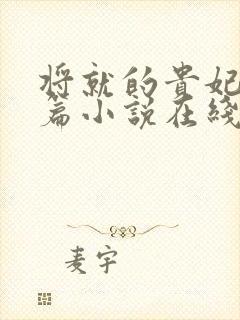 将就的贵妃
篇小说在线
麦宇